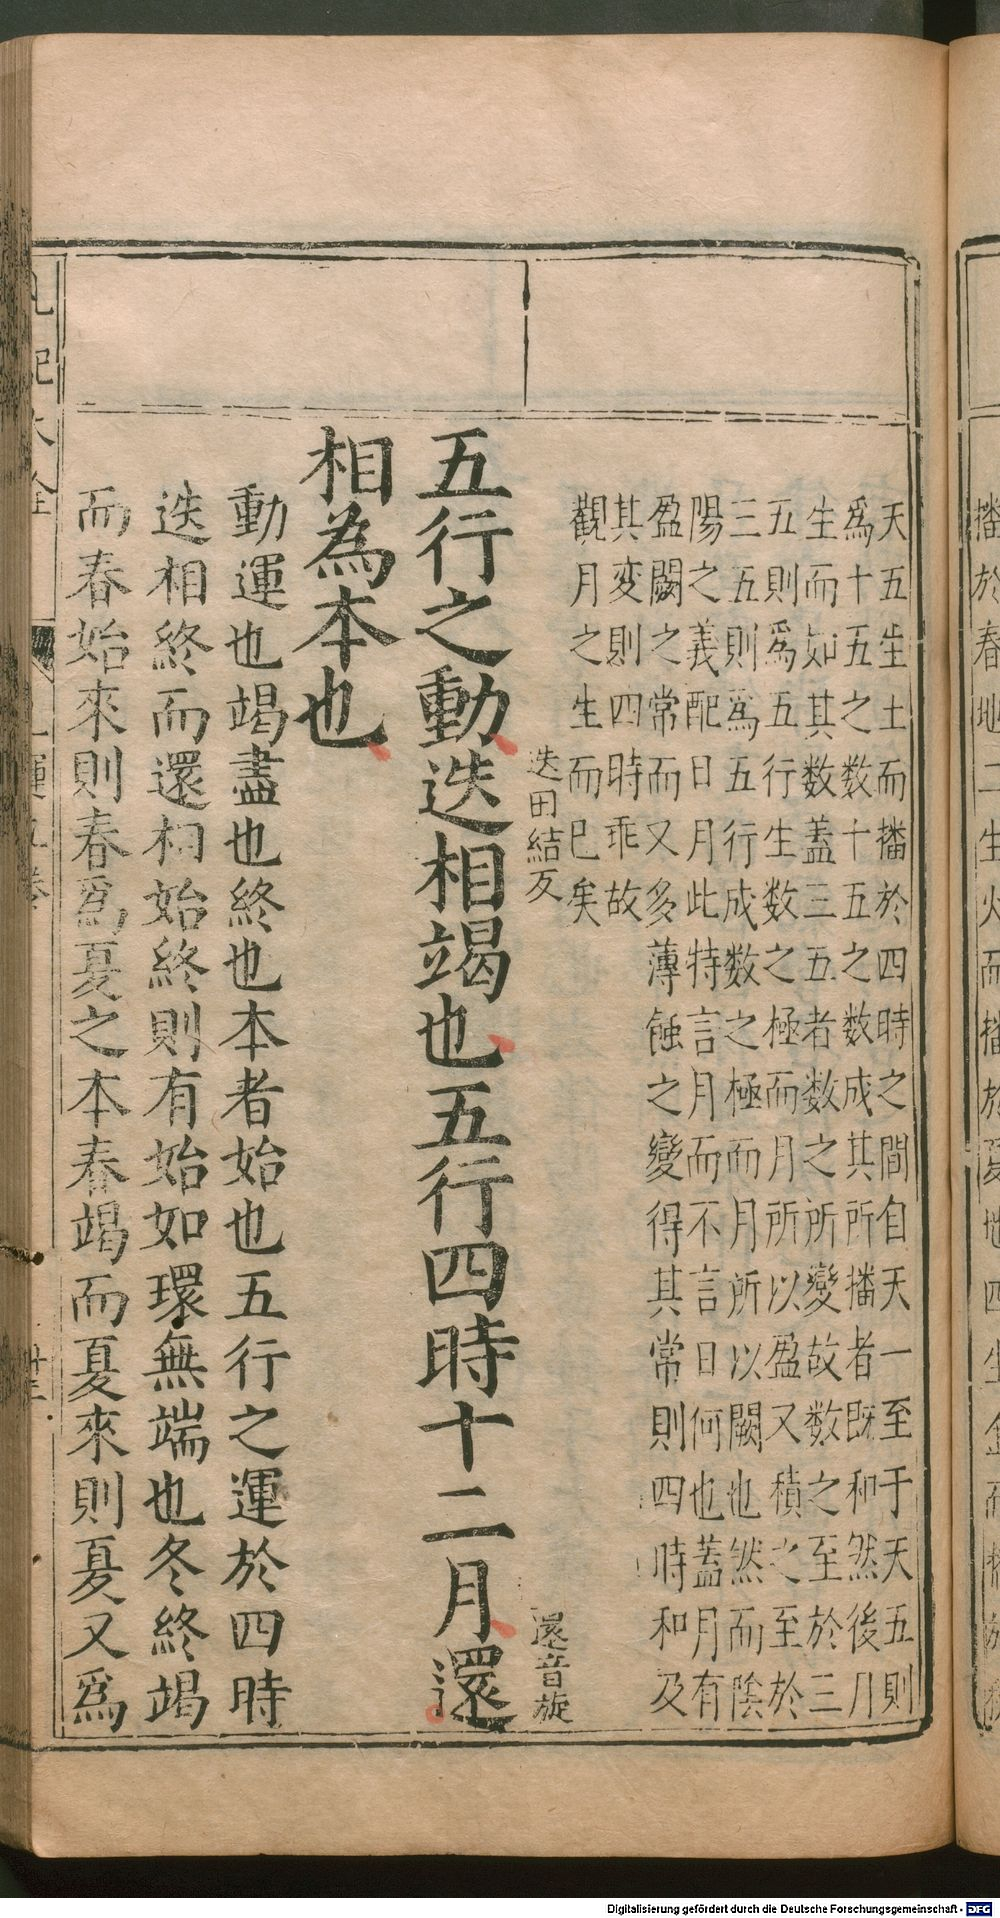 天五生土而播於四時之間自天一至于天五則
爲十五之数十五之数成其所播者既和然後月
生而如其数蓋三五者数之所變故数之至於三
五則爲五行生数之極而月所以盈又積之至於
三五則爲五行成数之極而月所以闕也然而陰
陽之義配日月此特言月而不言日何也蓋月有
盈闕之常而又多薄蝕之變得其常則四時和及
其变則四時乖故
觀月之生而已矣
迭田結反
還音旋
五行之動迭相竭也五行四時十二月還
相為本也
動運也竭盡也終也本者始也五行之運於四時
迭相終而還相始終則有始如環無端也冬終竭
而春始來則春爲夏之本春竭而夏來則夏又爲
播於春地二生火而播於夏地四生金而播於秋
Digitalisierung gefördert durch die Deutsche Forschungsgemeinschaft - DFG